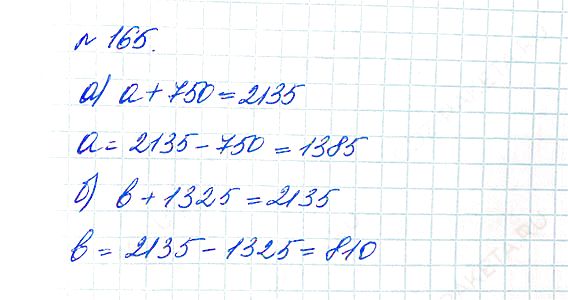 № 165.
а) a + 750 = 2135
a = 2135 - 750 = 1385
б) в + 1325 = 2135
в = 2135 - 1325 = 810